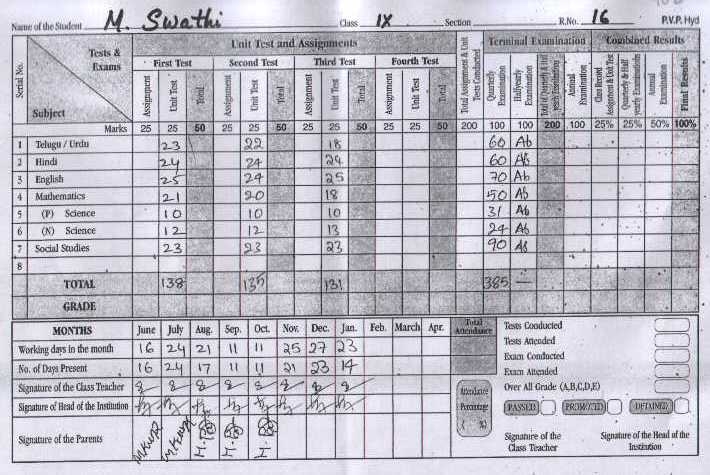 Name of the Student M. Swathi Class IX Section R.No. 16 P.V.P. Hyd
Serial No. Tests & Exams Unit Test and Assignments Terminal Examination Combined Results
First Test Second Test Third Test Fourth Test
Subject Assignment Unit Test Total Assignment Unit Test Total Assignment Unit Test Total Assignment Unit Test Total Total Assignment & Unit Tests Conducted Quarterly Examination Halfyearly Examination Total of Quarterly & Half yearly Examination Annual Examination Class Record Assignment & Unit Test Quarterly & Half yearly Examinations Annual Examination Final Results
Marks 25 25 50 25 25 50 25 25 50 25 25 50 200 100 100 200 100 25% 25% 50% 100%
1 Telugu / Urdu 23 22 18 60 Ab
2 Hindi 24 24 24 60 Ab
3 English 25 24 25 70 Ab
4 Mathematics 21 20 18 50 Ab
5 (P) Science 10 10 10 31 Ab
6 (N) Science 12 12 13 24 Ab
7 Social Studies 23 23 23 90 Ab
8
TOTAL 138 135 131 385 —
GRADE
MONTHS June July Aug. Sep. Oct. Nov. Dec. Jan. Feb. March Apr. Total Attendance
Working days in the month 16 24 21 11 11 25 27 23
No. of Days Present 16 24 17 11 11 21 23 14
Signature of the Class Teacher
Signature of Head of the Institution
Signature of the Parents
Attendance Percentage ( %)
Tests Conducted
Tests Attended
Exam Conducted
Exam Attended
Over All Grade (A,B,C,D,E)
PASSED PROMOTED DETAINED
Signature of the Class Teacher
Signature of the Head of the Institution